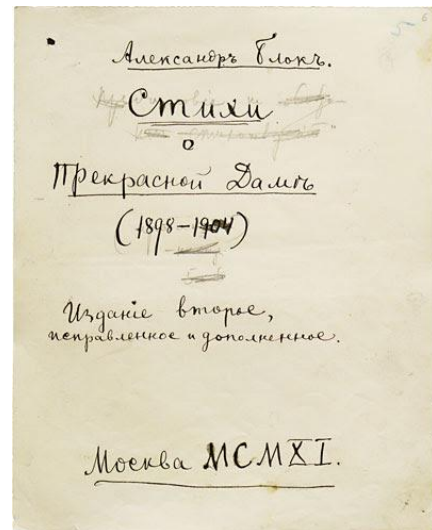 Александръ Блокъ.
Стихи
о
Прекрасной Дамѣ
(1898–1904)
Изданіе второе,
исправленное и дополненное.
Москва MCMXI.